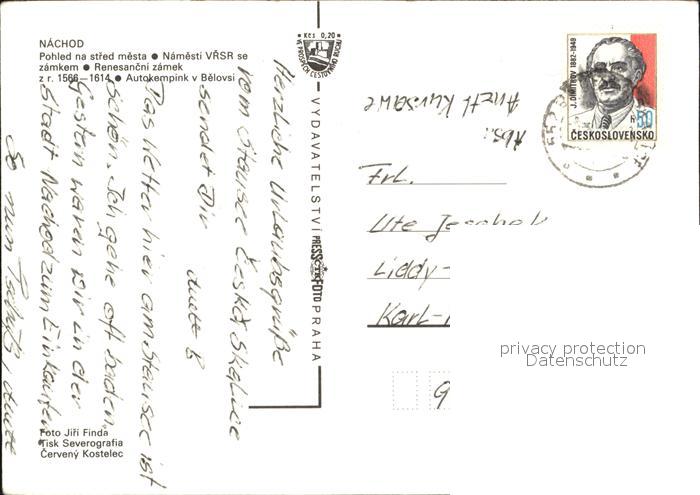 NÁCHOD
Pohled na střed města ● Náměstí VŘSR se
zámkem ● Renesanční zámek
z r. 1566—1614 ● Autokempink v Bělovsi
Herzliche Urlaubsgrüße
vom Stausee Česká Skalice
sendet Dir
Anett K
Das Wetter hier am Stausee ist
schön. Ich gehe oft baden.
Gestern waren wir in der
Stadt Nachod zum Einkaufen.
So nun Tschüß, Anett
Foto Jiří Finda
Tisk Severografia
Červený Kostelec
Kčs 0,20
VE PROSPĚCH CESTOVNÍHO RUCHU
VYDAVATELSTVÍ PRESSFOTO PRAHA
Abs.:
Anett Kursawe
Frl.
Ute
Liddy-
Karl-
9
J. DIMITROV 1882-1949
50 h
ČESKOSLOVENSKO
privacy protection
Datenschutz